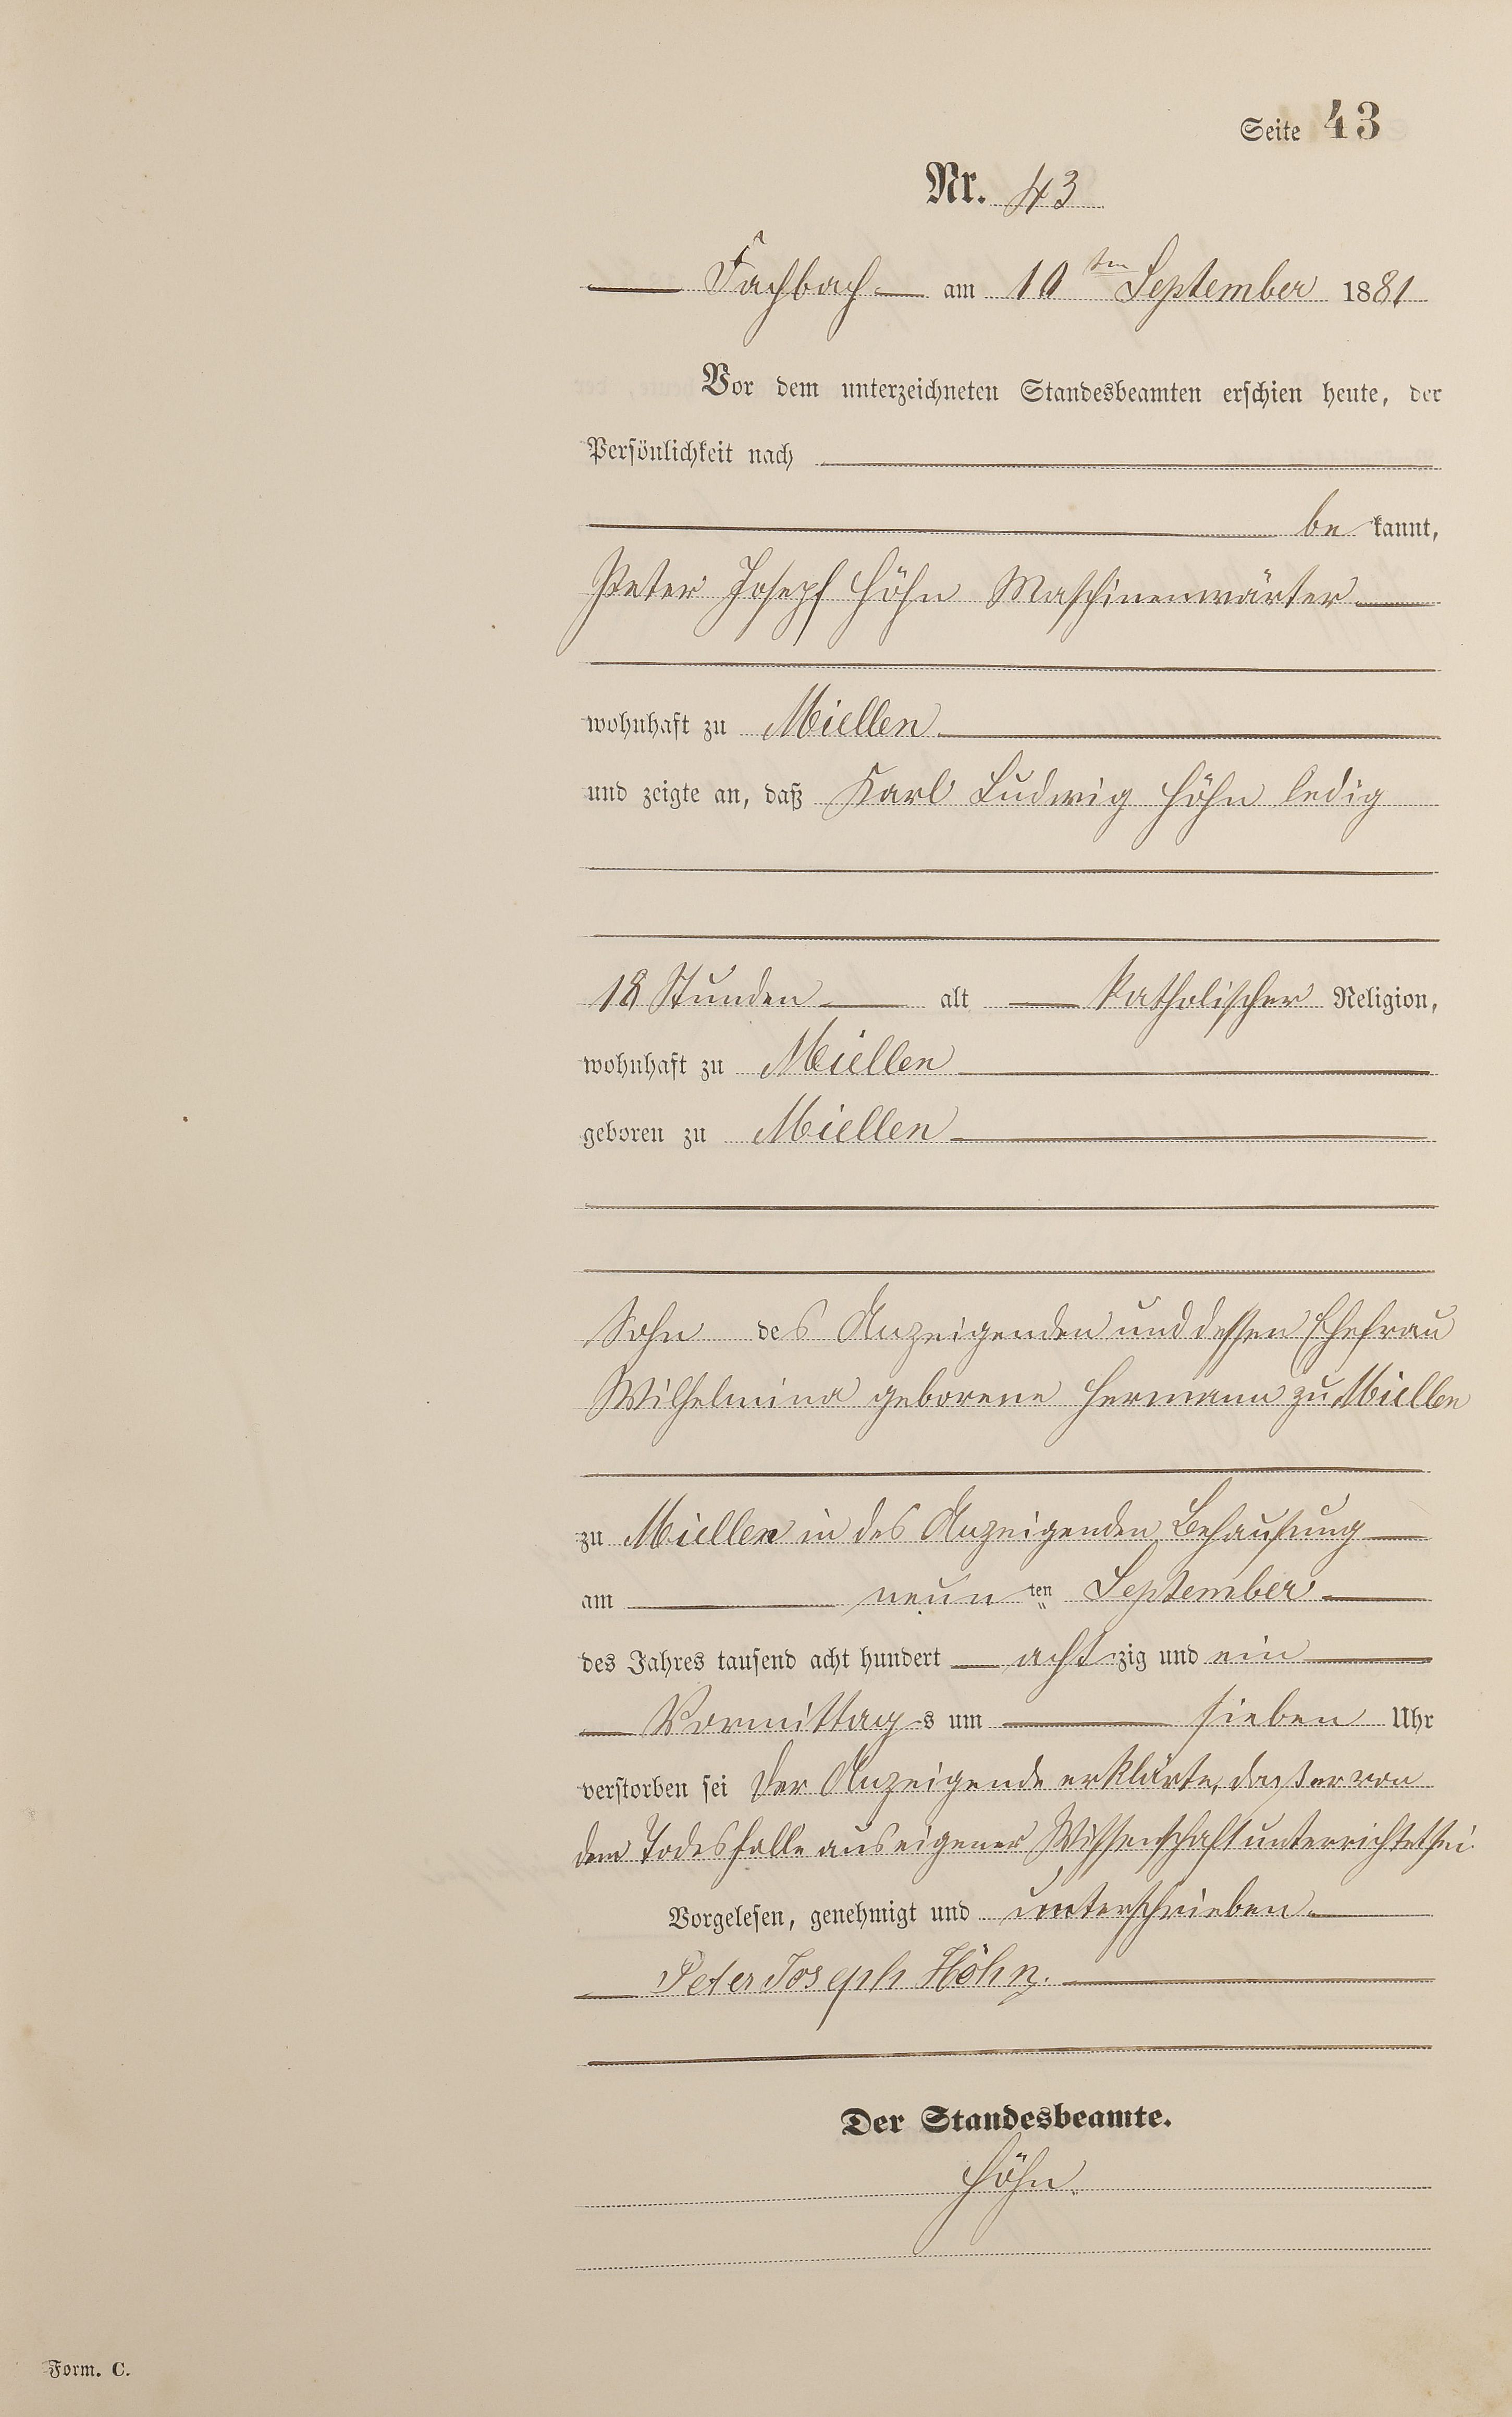 Seite 43
Nr. 43
Fachbach am 10ten September 1881
Vor dem unterzeichneten Standesbeamten erschien heute, der
Persönlichkeit nach
be kannt,
Peter Josepf Höhn Maschinenwärter
wohnhaft zu Miellen
und zeigte an, daß Karl Ludwig Höhn ledig
18 Stunden alt katholischer Religion,
wohnhaft zu Miellen
geboren zu Miellen
Sohn des Anzeigenden und dessen Ehefrau
Wilhelmina geborene Hermann zu Miellen
zu Miellen in des Anzeigenden Behausung
am neunten September
des Jahres tausend acht hundert achtzig und ein
Vormittags um sieben Uhr
verstorben sei Der Anzeigende erklärte, daß er von
dem Todesfalle aus eigener Wissenschaft unterrichtet sei.
Vorgelesen, genehmigt und unterschrieben.
Peter Joseph Höhn.
Der Standesbeamte.
Höhn.
Form. C.